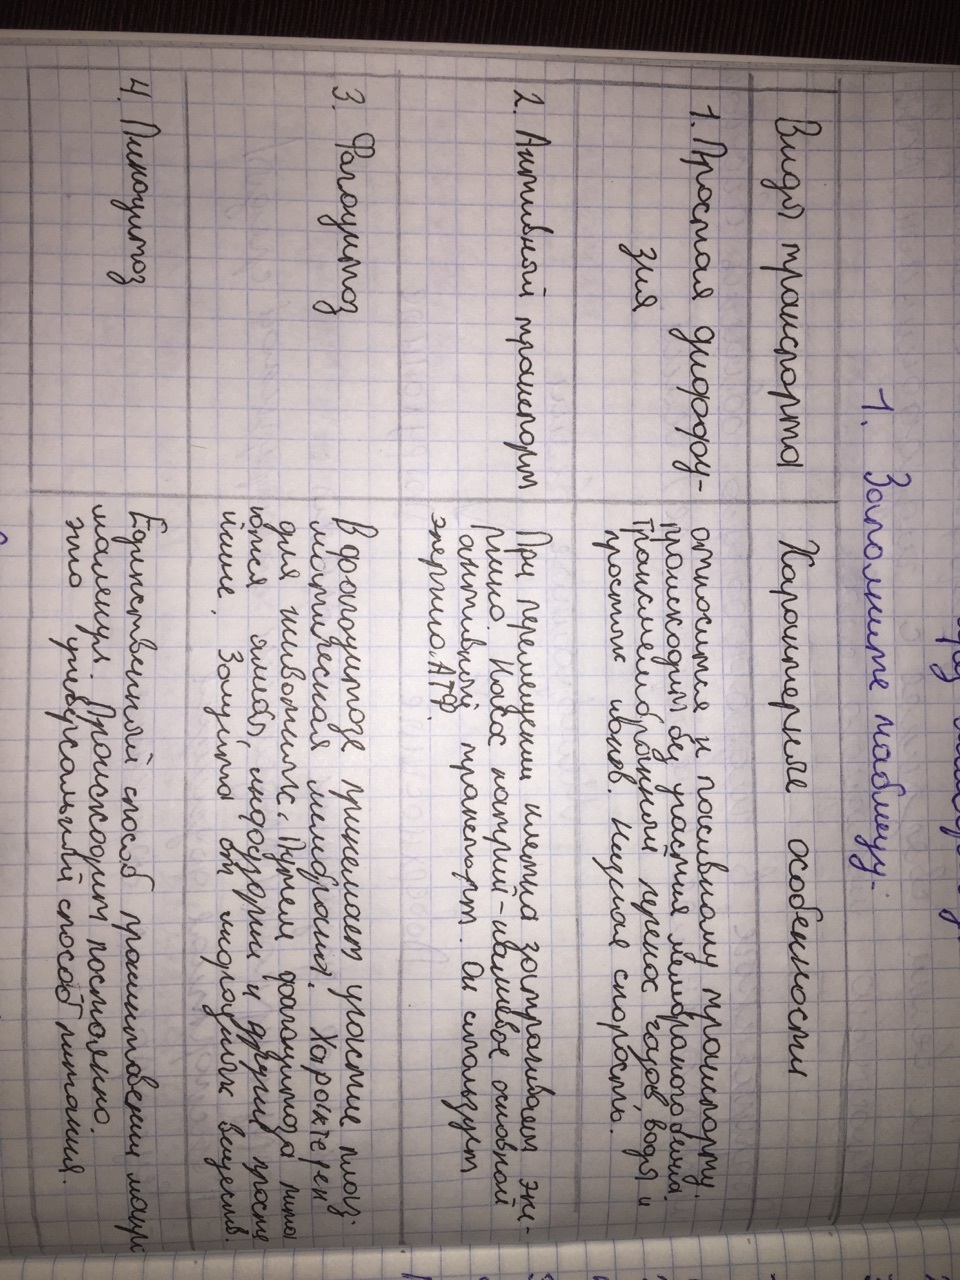 1. Заполните таблицу:
Виды транспорта
Характерные особенности
1. Простая диффу-
зия
относится к пассивному транспорту.
происходит без участия мембранного белка.
Трансмембранный перенос газов, воды и
простых ионов. Низкая скорость.
2. Активный транспорт
При перемещении клетка затрачивает эне-
ргию. Насос натрий-калиевое основной
активный транспорт. Он использует
энергию АТФ.
3. Фагоцитоз
В фагоцитозе принимает участие плаз-
матическая мембрана. Характерен
для животных. Путем фагоцитоза пита
ются амебы, инфузории и другие просте
йшие. Защита от
4. Пиноцитоз
Единственный способ макро
молекул. Происходит постоянно.
это универсальный способ питания.